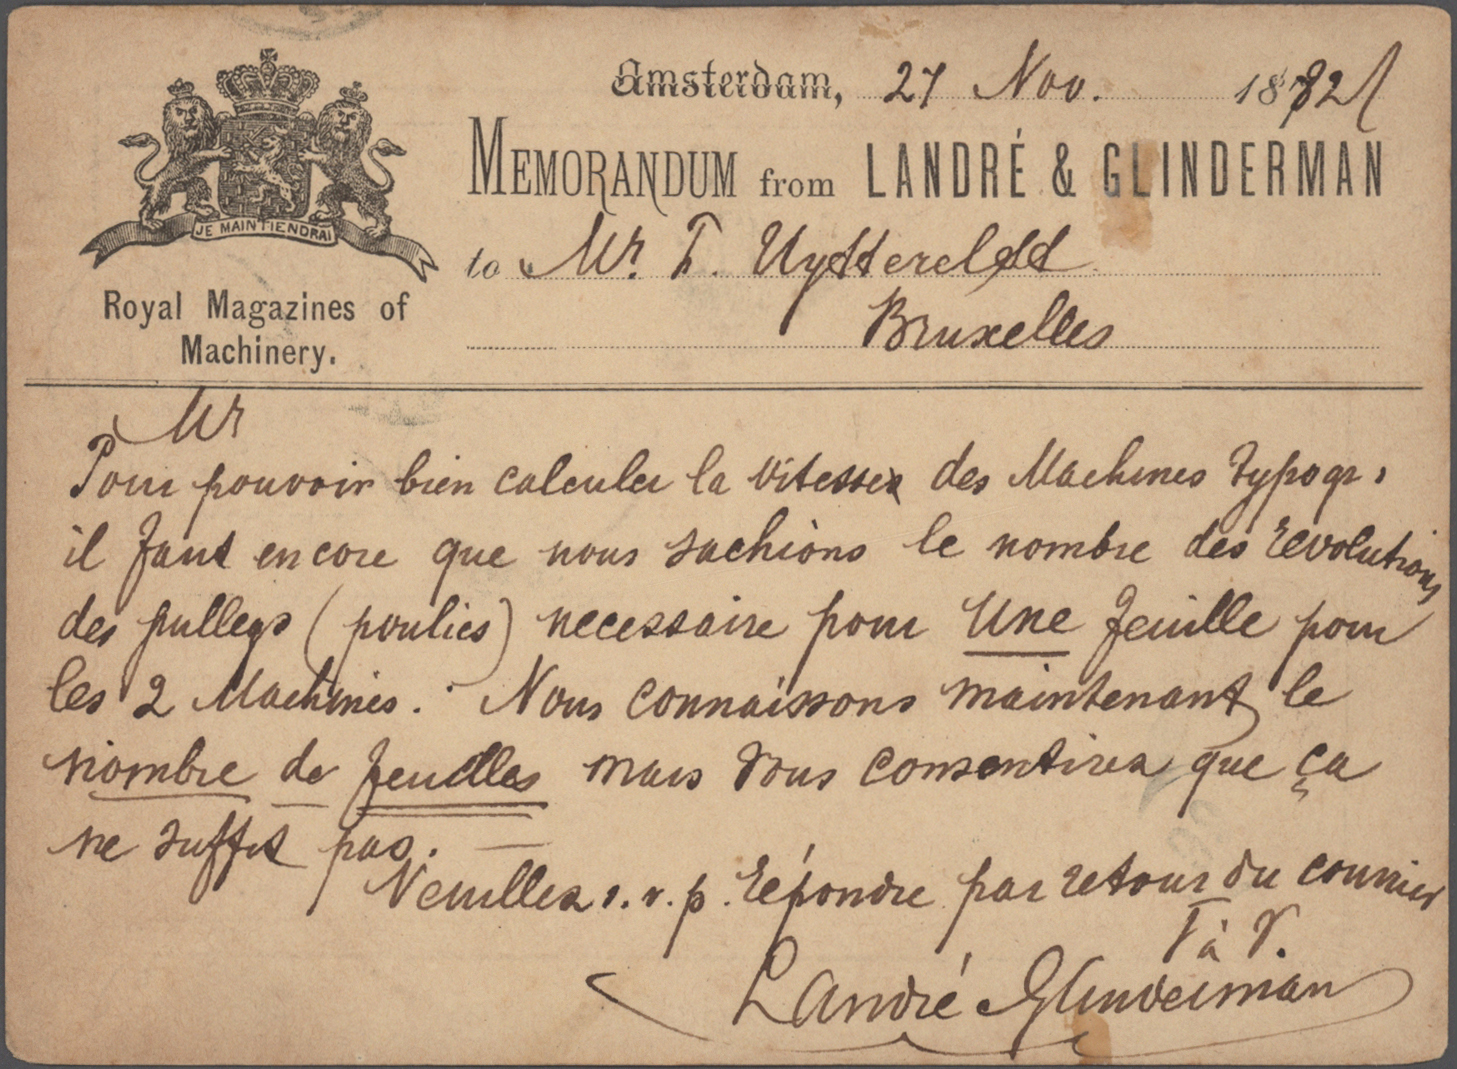 Amsterdam, 27 Nov. 1882
MEMORANDUM from LANDRÉ & GLINDERMAN
JE MAINTIENDRAI
to Mr. T. Uytterelst
Bruxelles
Royal Magazines of
Machinery.
Mr
Pour pouvoir bien calculer la vitesse des Machines typogr.
il faut encore que nous sachions le nombre des révolutions
des pulleys (poulies) necessaire pour Une feuille pour
les 2 Machines. Nous connaissons maintenant le
nombre de feuilles mais vous consentirez que ça
ne suffit pas. —
Veuillez s.v.p. répondre par retour du courrier
T à V.
Landré Glinderman